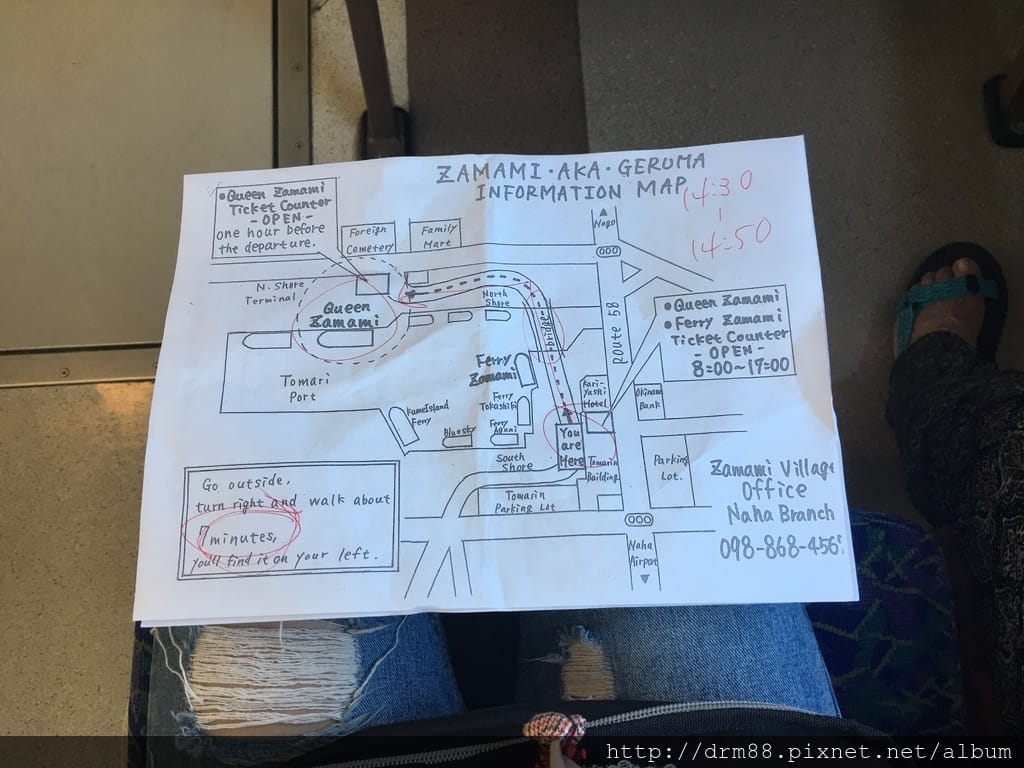 ZAMAMI・AKA・GERUMA
INFORMATION MAP
14:30
14:50
•Queen Zamami
Ticket Counter
- OPEN -
one hour before
the departure.
Foreign
Cemetery
Family
Mart
Nago
N. Shore
Terminal
Queen
Zamami
North
Shore
bridge
Route 58
•Queen Zamami
•Ferry Zamami
Ticket Counter
- OPEN -
8:00~17:00
Tomari
Port
Ferry
Zamami
Ferry
Tokashiki
Ferry
Aguni
Kume Island
Ferry
Bluesky
Kari-
Yushi
Hotel
Okinawa
Bank
You
are
Here
South
Shore
Tomarin
Building
Parking
Lot.
Tomarin
Parking Lot
Go outside,
turn right and walk about
7 minutes,
you'll find it on your left.
Zamami Village
Office
Naha Branch
098-868-456
Naha
Airport
http://drm88.pixnet.net/album